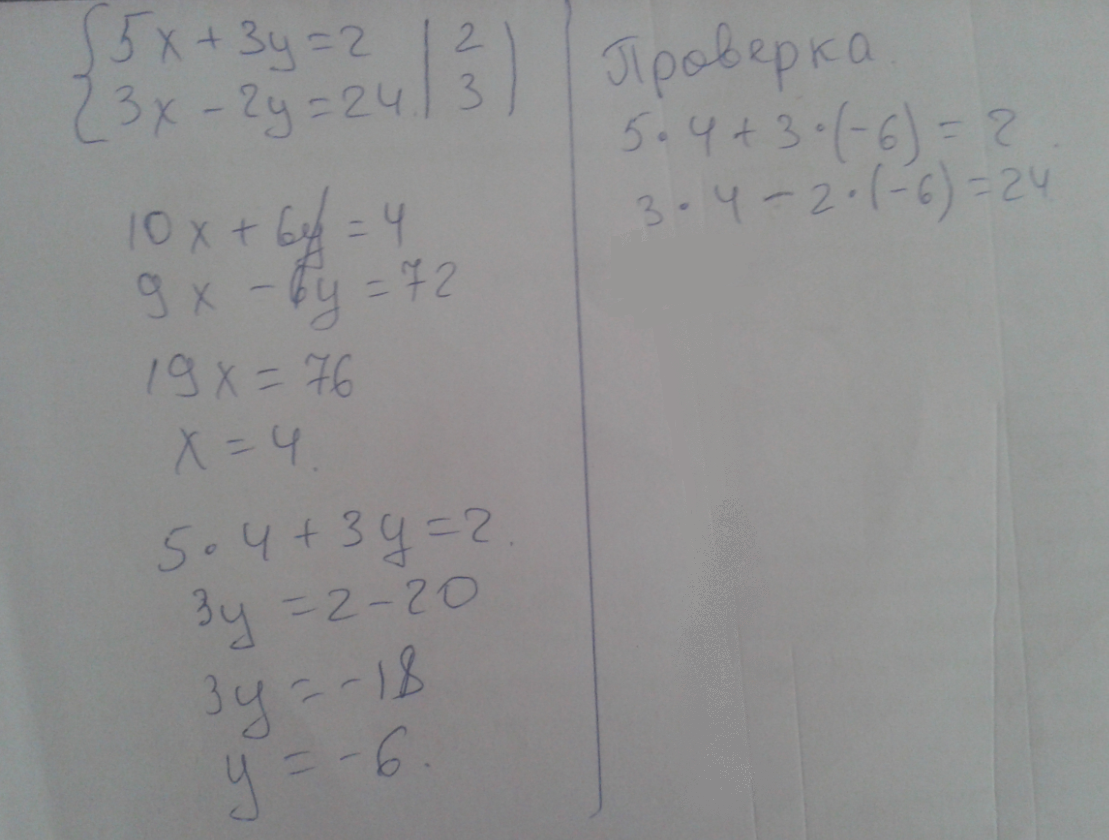 5x + 3y = 2 | 2
3x - 2y = 24. | 3
10x + 6y = 4
9x - 6y = 72
19x = 76
x = 4.
5 · 4 + 3y = 2.
3y = 2 - 20
3y = -18
y = -6.
Проверка.
5 · 4 + 3 · (-6) = 2.
3 · 4 - 2 · (-6) = 24